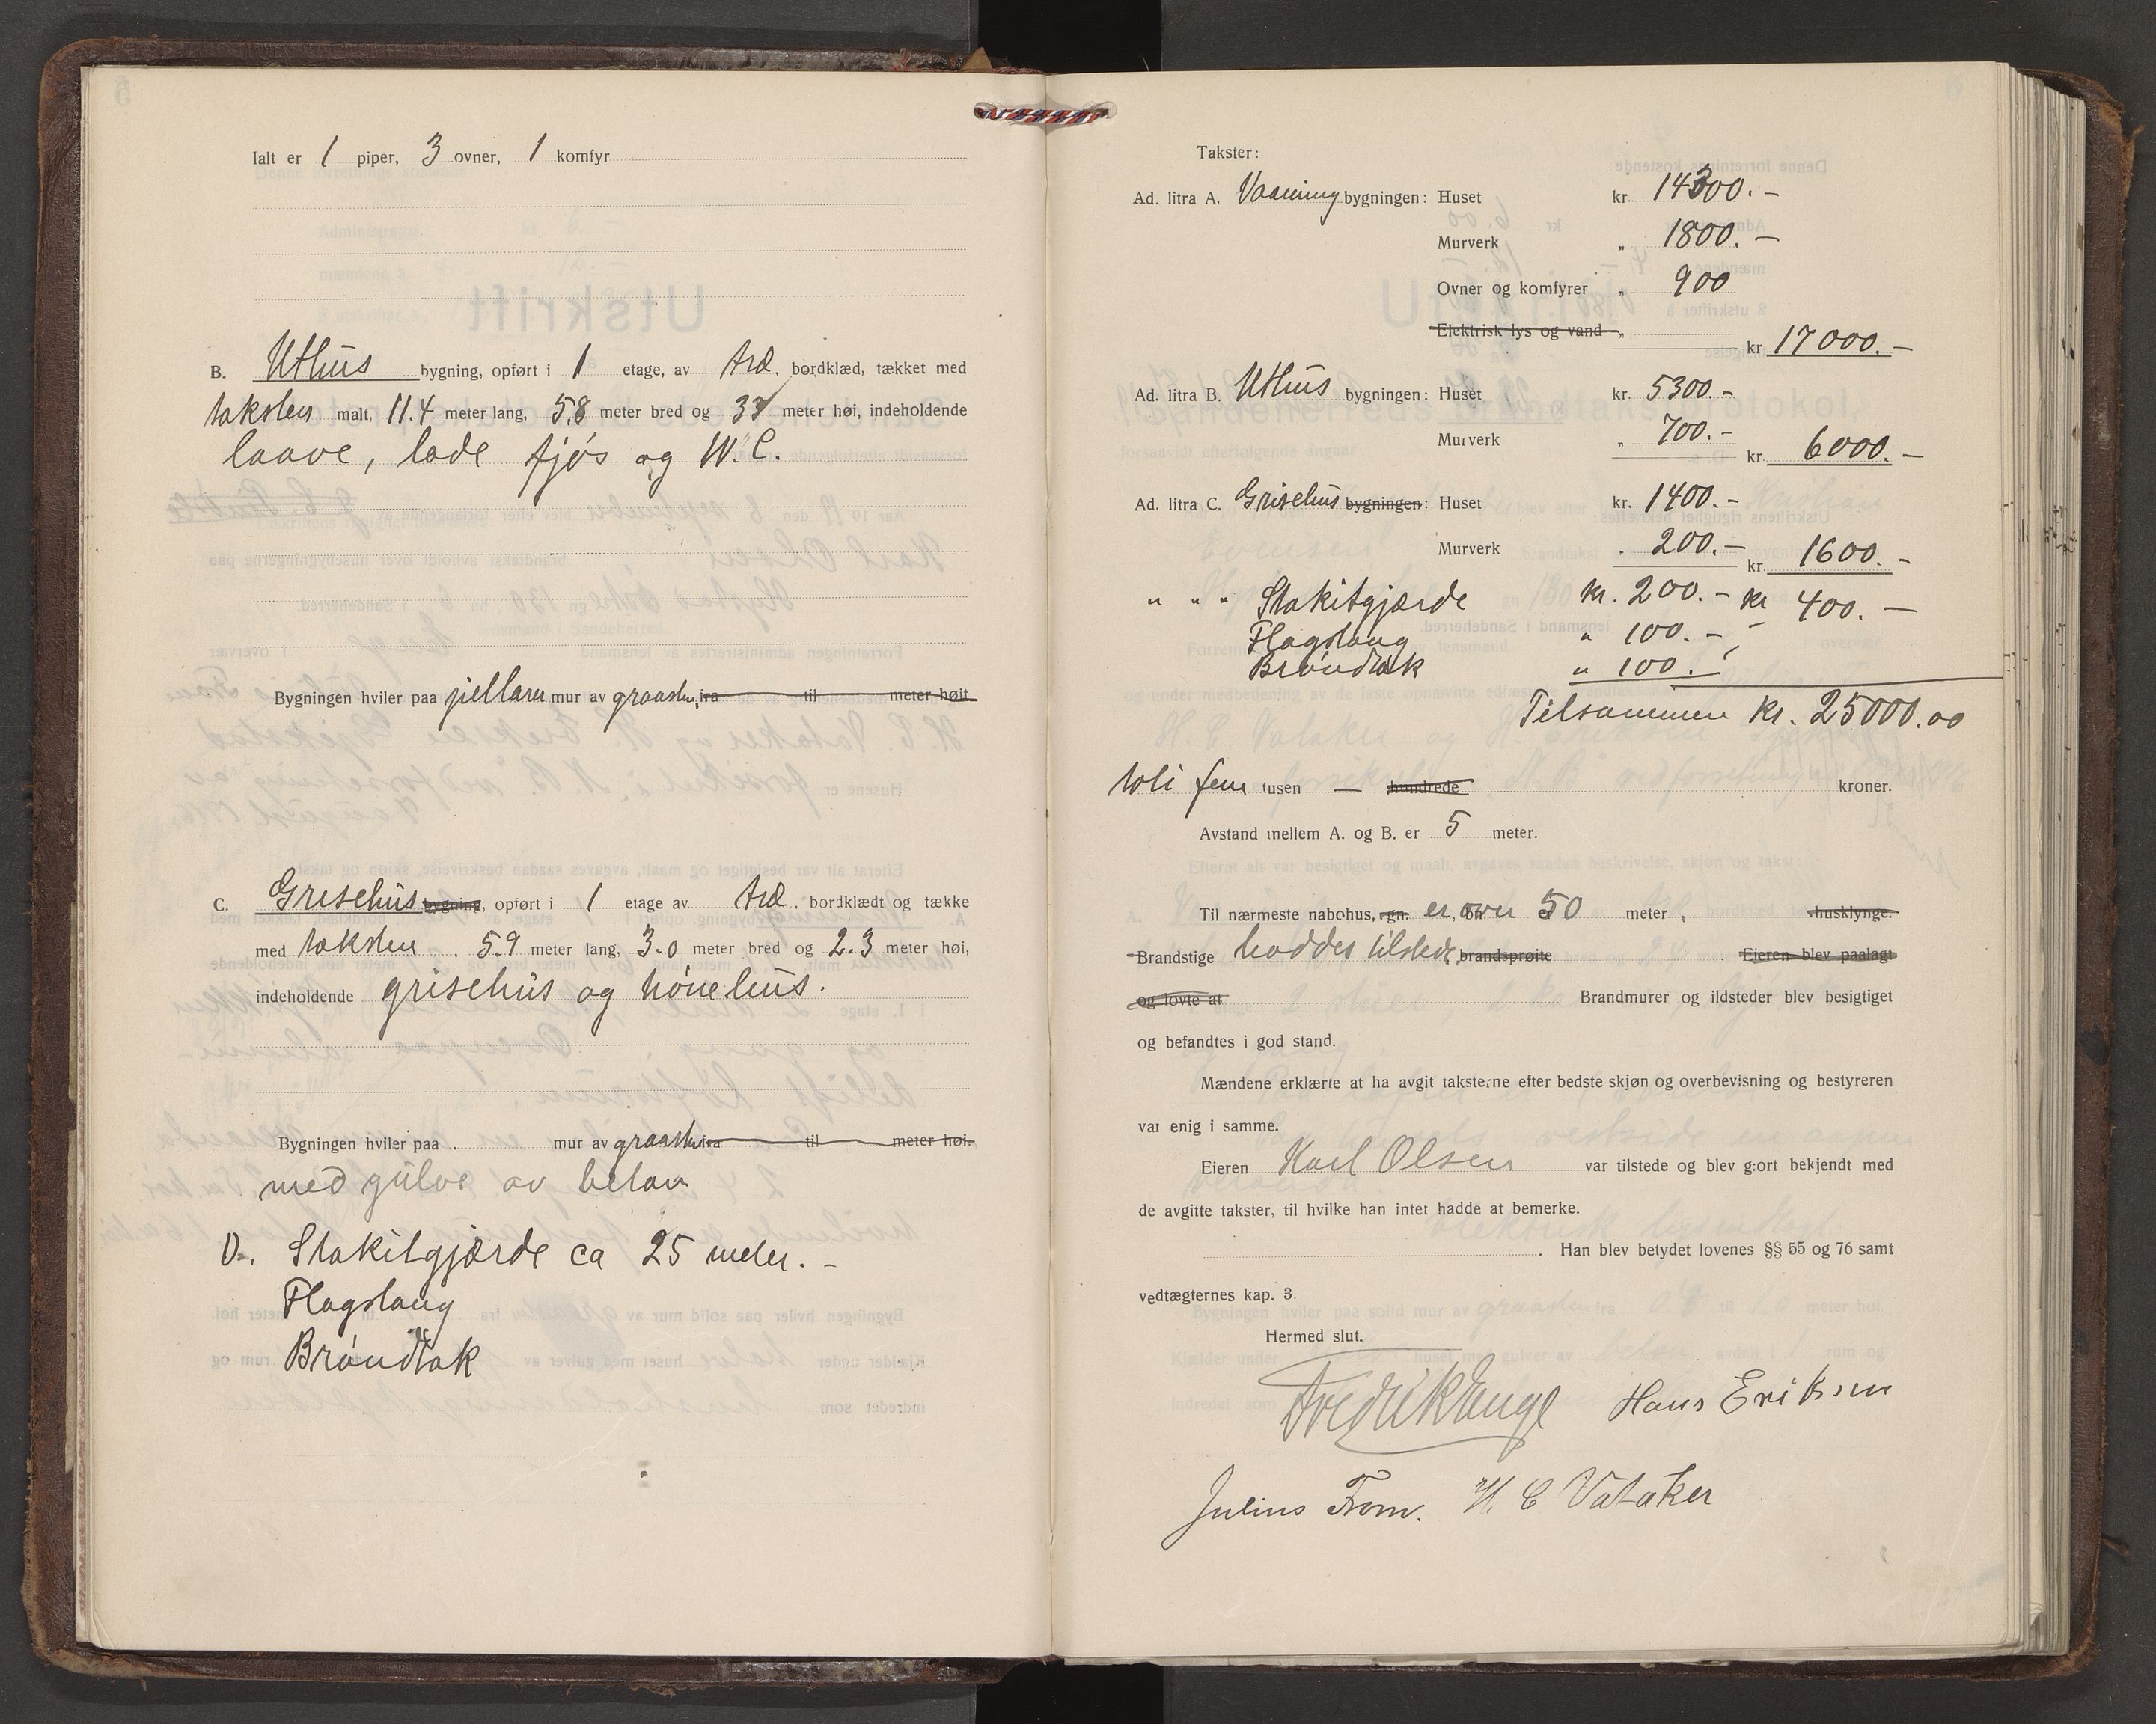 Ialt er 1 piper, 3 ovner, 1 komfyr
B. Uthus bygning, opført i 1 etage, av træ. bordklæd, tækket med
taksten malt, 11.4 meter lang, 5.8 meter bred og 33 meter høi, indeholdende
laave, lade fjøs og W.C.
Bygningen hviler paa pillarer mur av graasten, fra til meter høit
C. Grisehus bygning, opført i 1 etage av træ. bordklædt og tække
med taksten . 5.9 meter lang, 3.0 meter bred og 2.3 meter høi,
indeholdende grisehus og hønehus.
Bygningen hviler paa . mur av graasten fra til meter høi.
med gulve av beton
D. Stakitgjærde ca 25 meter. -
Flagstang
Brøndtak
Takster:
Ad. litra A. Vaaning bygningen: Huset kr. 14300.-
Murverk " 1800.-
Ovner og komfyrer " 900
Elektrisk lys og vand " kr 17000.-
Ad. litra B. Uthus bygningen: Huset kr. 5300.-
Murverk " 700.- kr. 6000.-
Ad. litra C. Grisehus bygningen: Huset kr. 1400.-
Murverk . 200.- kr. 1600.-
" " " Stakitgjærde kr. 200.- kr 400.-
Flagstang " 100.-
Brøndtak " 100.-
Tilsammen kr. 25000.00
toti fem tusen — hundrede kroner.
Avstand mellem A. og B. er 5 meter.
Til nærmeste nabohus, gn. er, bn. over 50 meter , husklynge.
Brandstige haddes tilstede, brandsprøite . Eieren blev paalagt
og lovte at Brandmurer og ildsteder blev besigtiget
og befandtes i god stand.
Mændene erklærte at ha avgit taksterne efter bedste skjøn og overbevisning og bestyreren
var enig i samme.
Eieren Karl Olsen var tilstede og blev gjort bekjendt med
de avgitte takster, til hvilke han intet hadde at bemerke.
. Han blev betydet lovenes §§ 55 og 76 samt
vedtægternes kap. 3.
Hermed slut.
Fredrik Lunge Hans Eriksen
Julius From. H. C Vataker